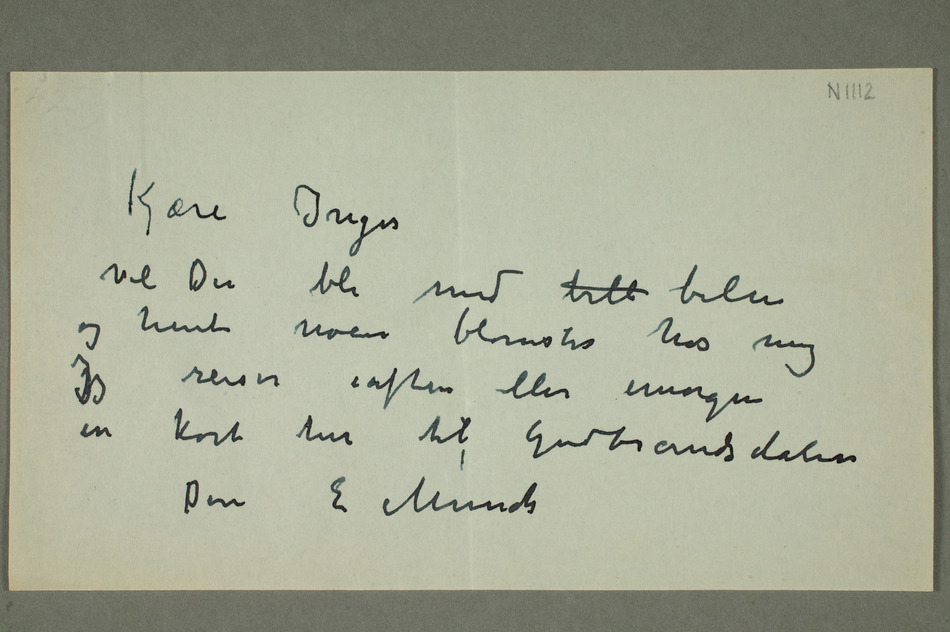 N 1112
Kjære Inger
vil Du bli med bilen
og hente noen blomster hos mig
Jeg reiser iaften eller imorgen
en kort tur til Gudbrandsdalen
Din E Munch